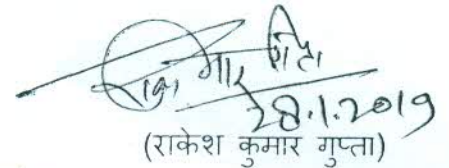 28.1.2019
(राकेश कुमार गुप्ता)